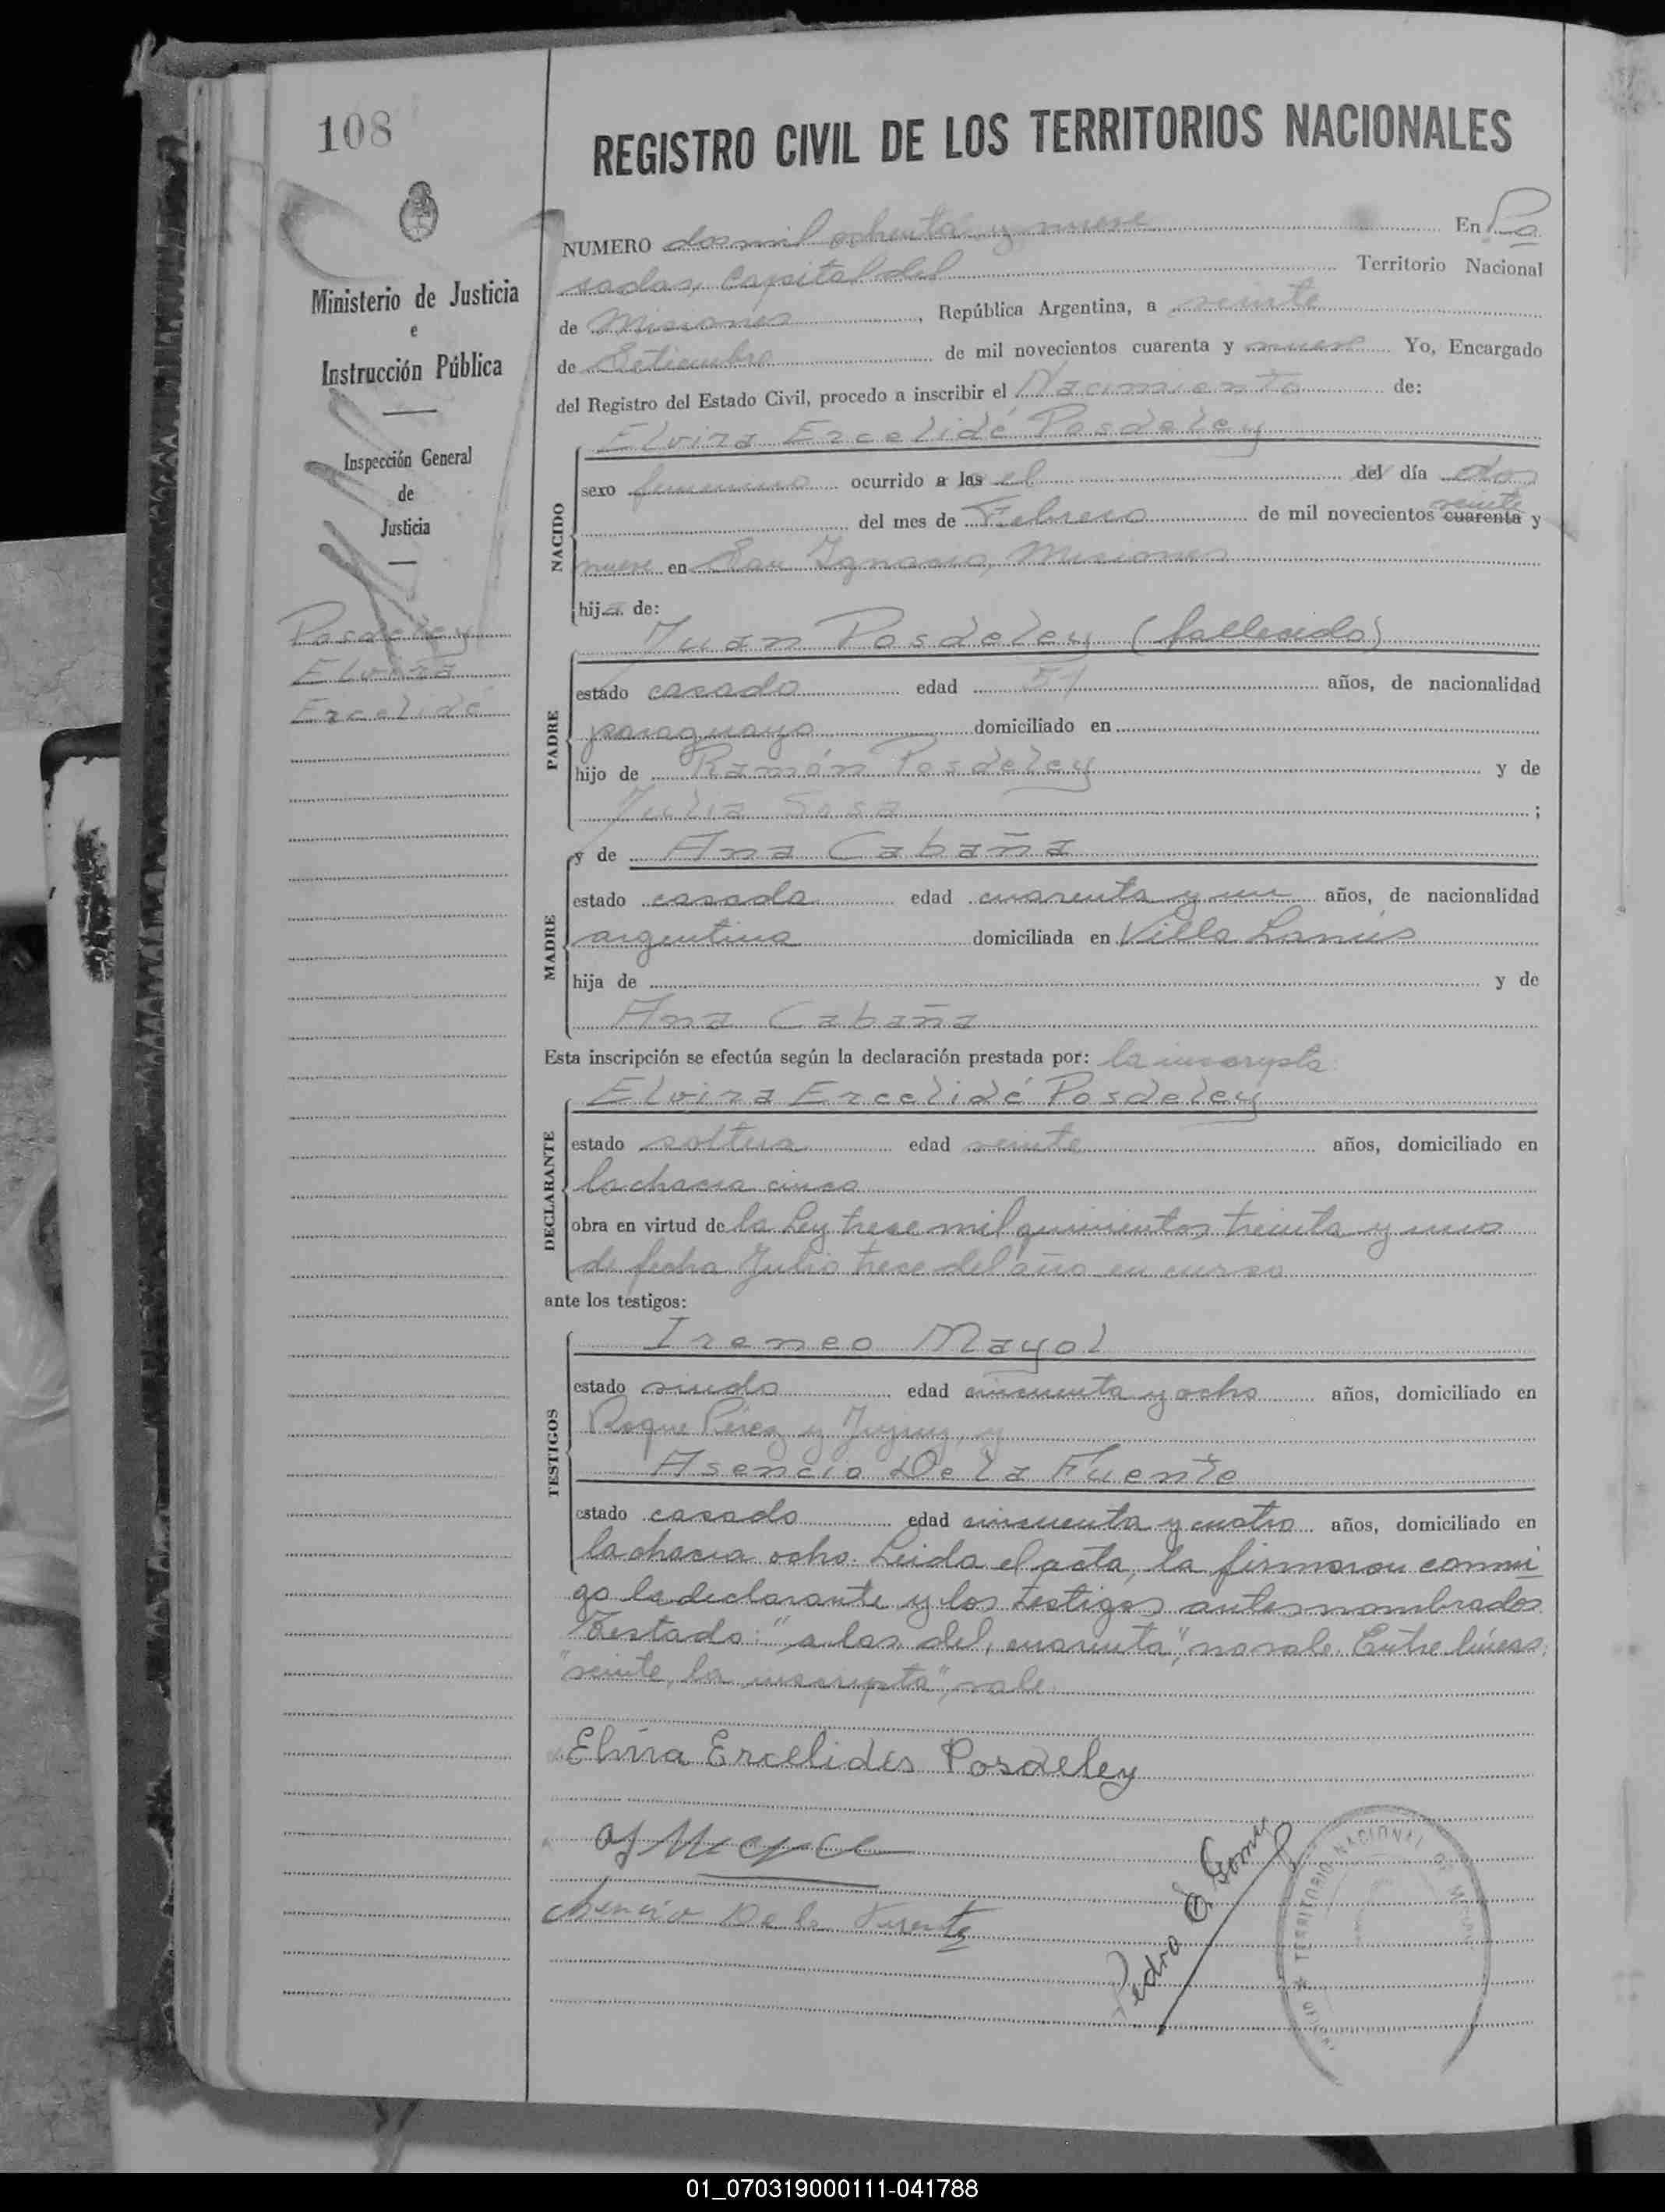 108
Ministerio de Justicia
e
Instrucción Pública
Inspección General
de
Justicia
Posdeley
Elvira
Ercelidé
REGISTRO CIVIL DE LOS TERRITORIOS NACIONALES
NUMERO dos mil ochenta y nueve En Po
sadas, Capital del Territorio Nacional
de Misiones, República Argentina, a veinte
de Setiembre de mil novecientos cuarenta y nueve Yo, Encargado
del Registro del Estado Civil, procedo a inscribir el Nacimiento de:
Elvira Ercelidé Posdeley
NACIDO
sexo femenino ocurrido a las el del día dos
veinte
del mes de Febrero de mil novecientos cuarenta y
nueve en San Ignacio, Misiones
hija de:
Juan Posdeley (fallecido)
PADRE
estado casado edad 51 años, de nacionalidad
paraguayo domiciliado en
hijo de Ramón Posdeley y de
Julia Sosa ;
MADRE
y de Ana Cabaña
estado casada edad cuarenta y un años, de nacionalidad
argentina domiciliada en Villa Lanús
hija de y de
Ana Cabaña
Esta inscripción se efectúa según la declaración prestada por: la inscripta
Elvira Ercelidé Posdeley
DECLARANTE
estado soltera edad veinte años, domiciliado en
la chacra cinco
obra en virtud de la Ley trece mil quinientos treinta y uno
de fecha Julio trece del año en curso
ante los testigos:
Ireneo Mayol
TESTIGOS
estado viudo edad cincuenta y ocho años, domiciliado en
Roque Pérez y Jujuy, y
Asencio De la Fuente
estado casado edad cincuenta y cuatro años, domiciliado en
la chacra ocho. Leida el acta, la firmaron conmi
go la declarante y los testigos antes nombrados.
Testado: "a las del, cuarenta", no vale. Entre líneas:
"veinte, la inscripta", vale.
Elvira Ercelides Posdeley
Asencio De la Fuente
Pedro
TERRITORIO NACIONAL DE
01_070319000111-041788